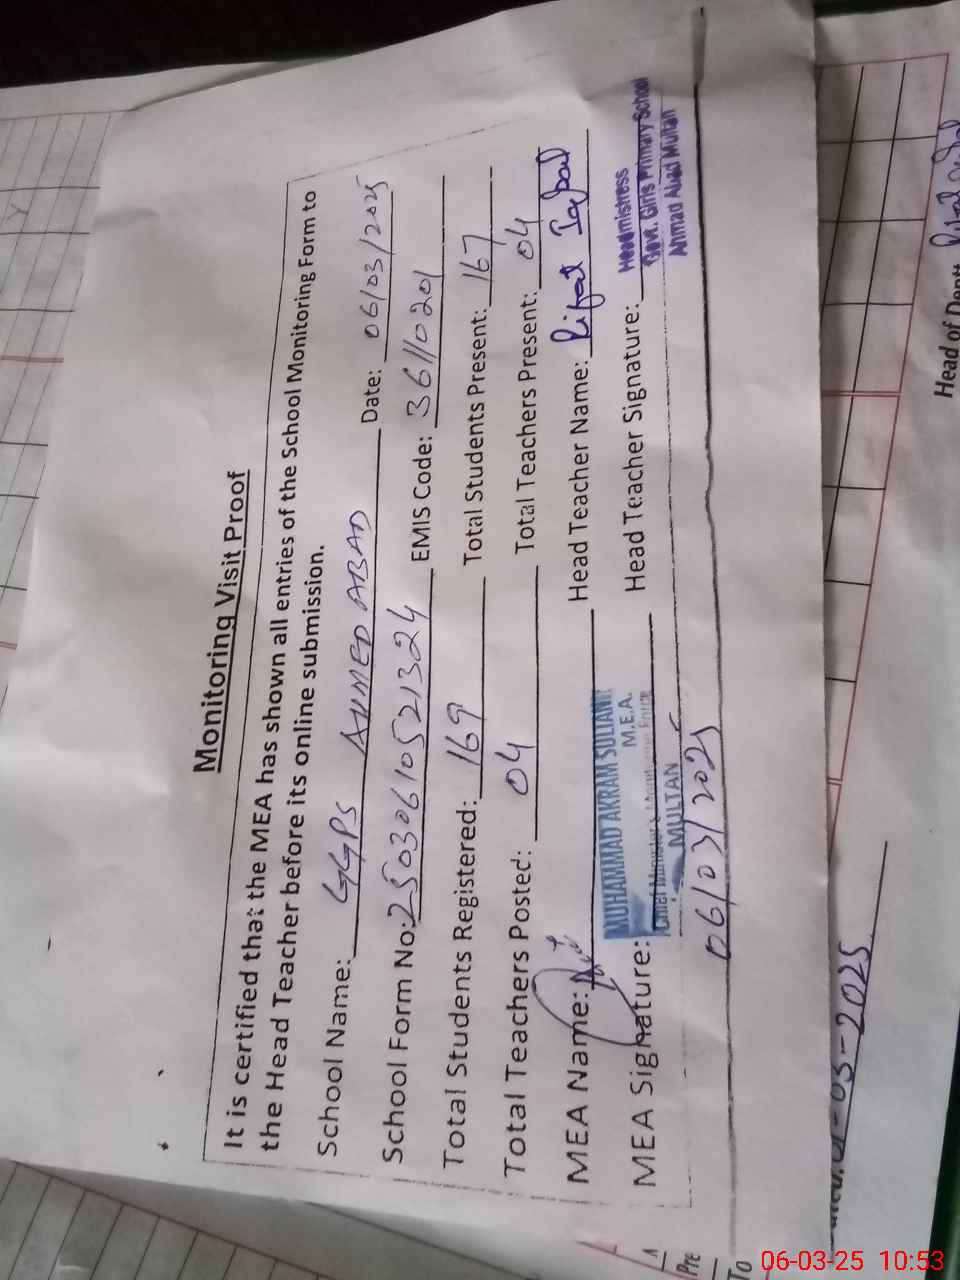 Monitoring Visit Proof
It is certified that the MEA has shown all entries of the School Monitoring Form to
the Head Teacher before its online submission.
School Name: GGPS AHMED ABAD Date: 06/03/2025
School Form No: 25030610521324 EMIS Code: 36110201
Total Students Registered: 169 Total Students Present: 167
Total Teachers Posted: 04 Total Teachers Present: 04
MEA Name: Head Teacher Name: Rifat Iqbal
MUHAMMAD AKRAM SULTANI
M.E.A.
MEA Signature: Chief Minister's Monitoring Force Head Teacher Signature:
MULTAN
Headmistress
Govt. Girls Primary School
Ahmad Abad Multan
06/03/2025
Pre
To
03-2025
Head of Deptt
06-03-25 10:53